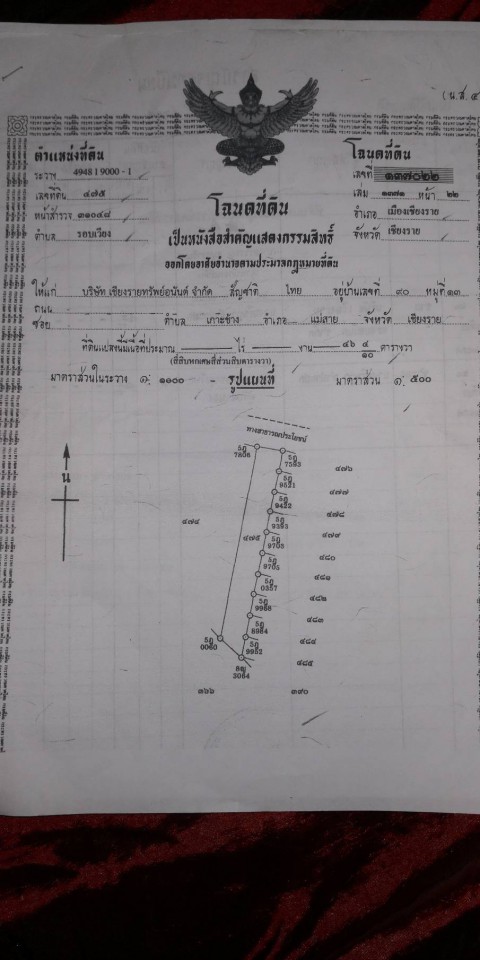 (น.ส. ๔
ตำแหน่งที่ดิน
ระวาง 4948 I 9000 - 1
เลขที่ดิน ๔๗๕
หน้าสำรวจ ๓๑๐๔๔
ตำบล รอบเวียง
โฉนดที่ดิน
เลขที่ ๑๓๗๐๒๒
เล่ม ๑๓๗๑ หน้า ๒๒
อำเภอ เมืองเชียงราย
จังหวัด เชียงราย
โฉนดที่ดิน
เป็นหนังสือสำคัญแสดงกรรมสิทธิ์
ออกโดยอาศัยอำนาจตามประมวลกฎหมายที่ดิน
ให้แก่ บริษัท เชียงรายทรัพย์อนันต์ จำกัด สัญชาติ ไทย อยู่บ้านเลขที่ ๙๐ หมู่ที่ ๑๓
ถนน
ซอย ตำบล เกาะช้าง อำเภอ แม่สาย จังหวัด เชียงราย
ที่ดินแปลงนี้มีเนื้อที่ประมาณ — ไร่ — งาน ๔๖ ๔/๑๐ ตารางวา
(สี่สิบหกเศษสี่ส่วนสิบตารางวา)
มาตราส่วนในระวาง ๑: ๑๐๐๐ - รูปแผนที่ มาตราส่วน ๑: ๕๐๐
ทางสาธารณประโยชน์
5ฎ
7806
5ฎ
7595
๔๗๖
5ฎ
9521
๔๗๗
5ฎ
9422
๔๗๘
5ฎ
9393
๔๗๙
๔๗๔
๔๗๕
5ฎ
9703
๔๘๐
5ฎ
9705
๔๘๑
5ฎ
0357
๔๘๒
5ฎ
9986
๔๘๓
5ฎ
8984
๔๘๔
5ฎ
0060
5ฎ
9952
๔๘๕
3064
๓๖๖
๓๙๐